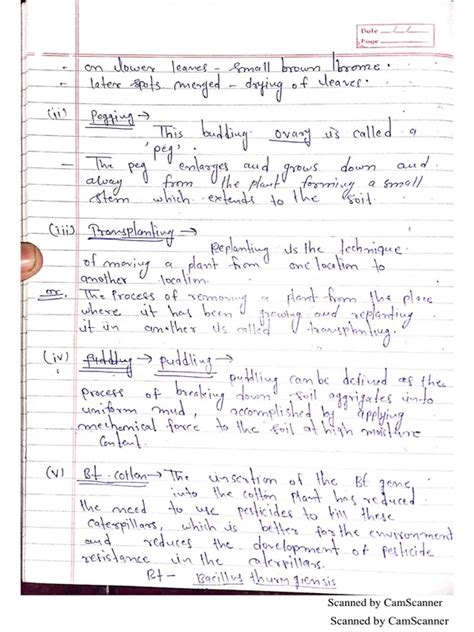 Date __/__/__
Page ____
- on lower leaves - small brown bronze.
- later spots merged - drying of leaves.
(ii) Pegging →
This budding ovary is called a
'peg'.
- The peg enlarges and grows down and
away from the plant forming a small
stem which extends to the soil.
(iii) Transplanting →
Replanting is the technique
of moving a plant from one location to
another location.
or. The process of removing a plant from the place
where it has been growing and replanting
it in another is called transplanting.
(iv) puddling → puddling →
puddling can be defined as the
process of breaking down soil aggrigates into
uniform mud, accomplished by applying
mechanical force to the soil at high moisture
content.
(v) Bt cotton → The insertion of the Bt gene
into the cotton plant has reduced
the need to use pesticides to kill these
caterpillars, which is better for the environment
and reduces the development of pesticide
resistance in the caterpillars.
Bt - Bacillus thuringiensis
Scanned by CamScanner
Scanned by CamScanner